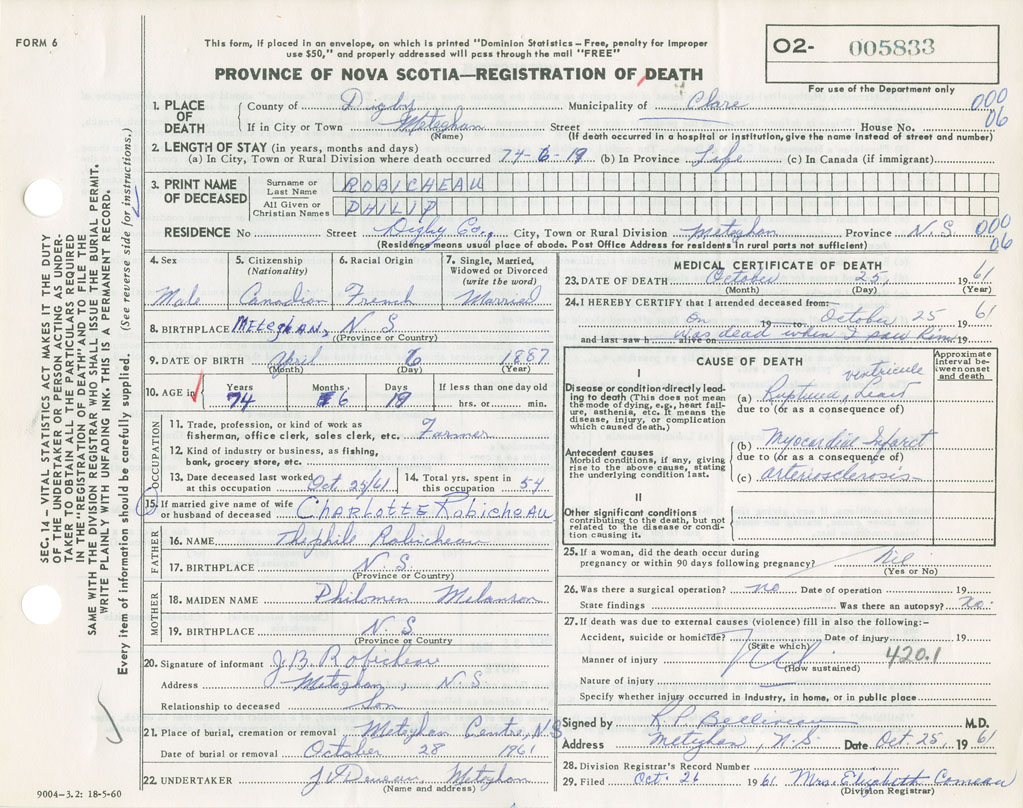 FORM 6
This form, if placed in an envelope, on which is printed "Dominion Statistics – Free, penalty for improper
use $50," and properly addressed will pass through the mail "FREE"
PROVINCE OF NOVA SCOTIA—REGISTRATION OF DEATH
02- 005833
For use of the Department only
SEC. 14 – VITAL STATISTICS ACT MAKES IT THE DUTY
OF THE UNDERTAKER OR PERSON ACTING AS UNDER-
TAKER TO OBTAIN ALL THE PARTICULARS REQUIRED
IN THE "REGISTRATION OF DEATH" AND TO FILE THE
SAME WITH THE DIVISION REGISTRAR WHO SHALL ISSUE THE BURIAL PERMIT.
WRITE PLAINLY WITH UNFADING INK. THIS IS A PERMANENT RECORD.
Every item of information should be carefully supplied. (See reverse side for instructions.)
1. PLACE OF DEATH County of Digby Municipality of Clare 000
If in City or Town Meteghan Street House No. 06
(Name) (If death occurred in a hospital or institution, give the name instead of street and number)
2. LENGTH OF STAY (in years, months and days)
(a) In City, Town or Rural Division where death occurred 74-6-19 (b) In Province Life (c) In Canada (if immigrant)
3. PRINT NAME OF DECEASED
Surname or Last Name ROBICHEAU
All Given or Christian Names PHILIP
RESIDENCE No Street Digby Co., City, Town or Rural Division Meteghan Province N.S. 000
(Residence means usual place of abode. Post Office Address for residents in rural parts not sufficient) 06
4. Sex Male
5. Citizenship (Nationality) Canadian
6. Racial Origin French
7. Single, Married, Widowed or Divorced (write the word) Married
8. BIRTHPLACE Meteghan, N.S
(Province or Country)
9. DATE OF BIRTH April 6 1887
(Month) (Day) (Year)
10. AGE in Years 74 Months 6 Days 19 If less than one day old hrs. or min.
OCCUPATION
11. Trade, profession, or kind of work as
fisherman, office clerk, sales clerk, etc. Farmer
12. Kind of industry or business, as fishing,
bank, grocery store, etc.
13. Date deceased last worked at this occupation Oct 25/61
14. Total yrs. spent in this occupation 54
15. If married give name of wife
or husband of deceased Charlotte Robicheau
FATHER
16. NAME Theophile Robicheau
17. BIRTHPLACE N.S.
(Province or Country)
MOTHER
18. MAIDEN NAME Philomen Melanson
19. BIRTHPLACE N.S
(Province or Country
20. Signature of informant J.B. Robicheau
Address Meteghan, N.S
Relationship to deceased Son
21. Place of burial, cremation or removal Meteghan Centre, N.S
Date of burial or removal October 28 1961
22. UNDERTAKER Meteghan
(Name and address)
9004-3.2: 18-5-60
MEDICAL CERTIFICATE OF DEATH
23. DATE OF DEATH October 25, 1961
(Month) (Day) (Year)
24. I HEREBY CERTIFY that I attended deceased from:
on 19 to October 25 1961
and last saw h was dead when I saw him alive on 19
CAUSE OF DEATH
Approximate interval between onset and death
I
Disease or condition directly lead-
ing to death (This does not mean
the mode of dying, e.g., heart fail-
ure, asthenia, etc. It means the
disease, injury, or complication
which caused death.)
(a) Ruptured ventricule Heart
due to (or as a consequence of)
Antecedent causes
Morbid conditions, if any, giving
rise to the above cause, stating
the underlying condition last.
(b) Myocardial Infarct
due to (or as a consequence of)
(c) arteriosclerosis
II
Other significant conditions
contributing to the death, but not
related to the disease or condi-
tion causing it.
25. If a woman, did the death occur during
pregnancy or within 90 days following pregnancy? Nil.
(Yes or No)
26. Was there a surgical operation? no Date of operation 19
State findings Was there an autopsy? no.
27. If death was due to external causes (violence) fill in also the following:-
Accident, suicide or homicide? Date of injury 19
(State which)
Manner of injury Nil 420.1
(How sustained)
Nature of injury
Specify whether injury occurred in industry, in home, or in public place
Signed by R.P. Belliveau M.D.
Address Meteghan, N.S. Date Oct. 25, 1961
28. Division Registrar's Record Number
29. Filed Oct. 26 1961 Mrs. Elizabeth Comeau
(Division Registrar)